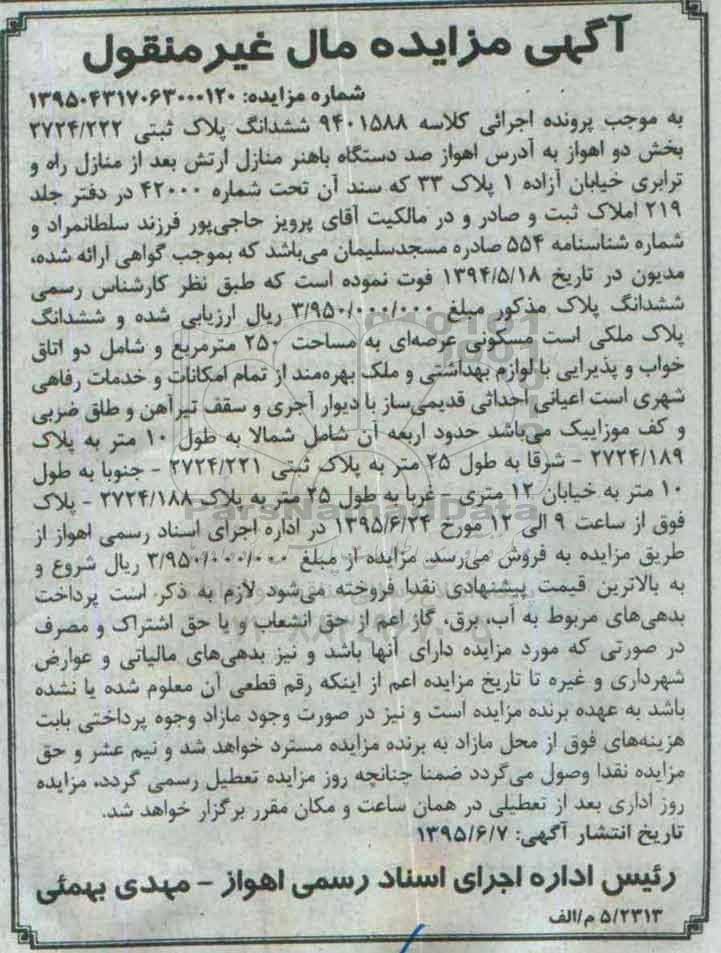 آگهی مزایده مال غیر منقول
شماره مزایده: ۱۳۹۵۰۴۳۱۷۰۶۳۰۰۰۱۲۰
به موجب پرونده اجرائی کلاسه ۹۴۰۱۵۸۸ ششدانگ پلاک ثبتی ۲۷۲۴/۲۲۲
بخش دو اهواز به آدرس اهواز صد دستگاه باهنر منازل ارتش بعد از منازل راه و
ترابری خیابان آزاده ۱ پلاک ۳۳ که سند آن تحت شماره ۴۲۰۰۰ در دفتر جلد
۲۱۹ املاک ثبت و صادر و در مالکیت آقای پرویز حاجی‌پور فرزند سلطانمراد و
شماره شناسنامه ۵۵۴ صادره مسجدسلیمان می‌باشد که بموجب گواهی ارائه شده،
مدیون در تاریخ ۱۳۹۴/۵/۱۸ فوت نموده است که طبق نظر کارشناس رسمی
ششدانگ پلاک مذکور مبلغ ۳/۹۵۰/۰۰۰/۰۰۰ ریال ارزیابی شده و ششدانگ
پلاک ملکی است مسکونی عرصه‌ای به مساحت ۲۵۰ مترمربع و شامل دو اتاق
خواب و پذیرایی با لوازم بهداشتی و ملک بهره‌مند از تمام امکانات و خدمات رفاهی
شهری است اعیانی احداثی قدیمی‌ساز با دیوار آجری و سقف تیرآهن و طاق ضربی
و کف موزاییک می‌باشد حدود اربعه آن شامل شمالا به طول ۱۰ متر به پلاک
۲۷۲۴/۱۸۹ - شرقا به طول ۲۵ متر به پلاک ثبتی ۲۷۲۴/۲۲۱ - جنوبا به طول
۱۰ متر به خیابان ۱۲ متری - غربا به طول ۲۵ متر به پلاک ۲۷۲۴/۱۸۸ - پلاک
فوق از ساعت ۹ الی ۱۲ مورخ ۱۳۹۵/۶/۲۴ در اداره اجرای اسناد رسمی اهواز از
طریق مزایده به فروش می‌رسد. مزایده از مبلغ ۳/۹۵۰/۰۰۰/۰۰۰ ریال شروع و
به بالاترین قیمت پیشنهادی نقدا فروخته می‌شود لازم به ذکر است پرداخت
بدهی‌های مربوط به آب، برق، گاز اعم از حق انشعاب و یا حق اشتراک و مصرف
در صورتی که مورد مزایده دارای آنها باشد و نیز بدهی‌های مالیاتی و عوارض
شهرداری و غیره تا تاریخ مزایده اعم از اینکه رقم قطعی آن معلوم شده یا نشده
باشد به عهده برنده مزایده است و نیز در صورت وجود مازاد وجوه پرداختی بابت
هزینه‌های فوق از محل مازاد به برنده مزایده مسترد خواهد شد و نیم عشر و حق
مزایده نقدا وصول می‌گردد ضمنا چنانچه روز مزایده تعطیل رسمی گردد، مزایده
روز اداری بعد از تعطیلی در همان ساعت و مکان مقرر برگزار خواهد شد.
تاریخ انتشار آگهی: ۱۳۹۵/۶/۷
رئیس اداره اجرای اسناد رسمی اهواز - مهدی بهمئی
۵/۲۳۱۳ م/الف
ParsNamadData